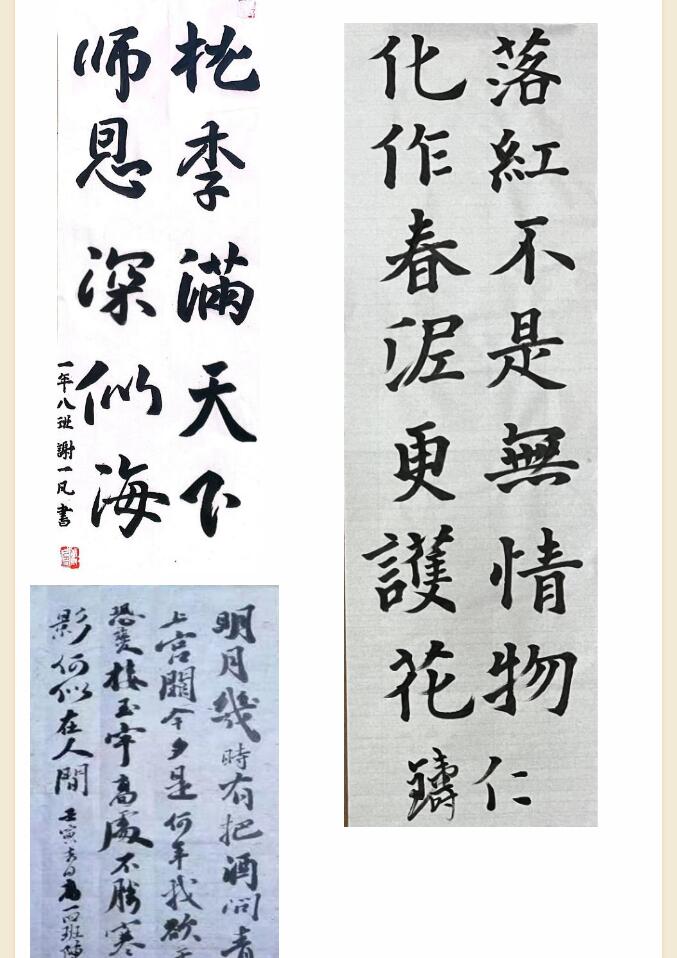 桃李滿天下
师恩深似海
一年八班 謝一凡 書
落紅不是無情物 仁
化作春泥更護花 鑄
明月幾時有把酒問青
上宮闕今夕是何年我欲
恐瓊樓玉宇高處不勝寒
影何似在人間 壬寅 高一四班